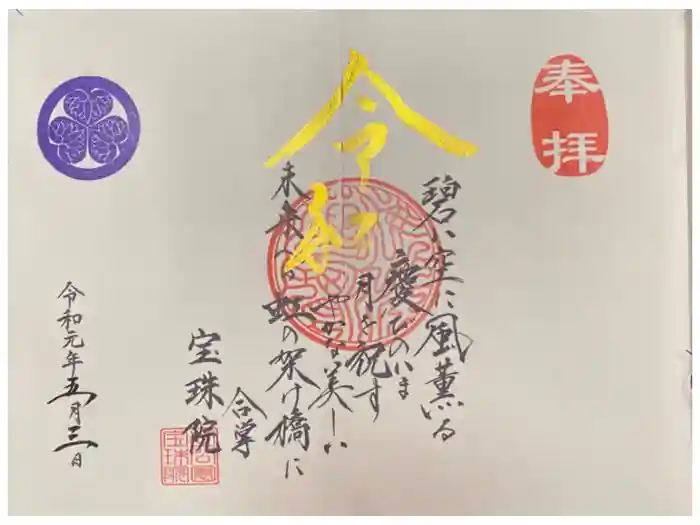 奉拝
令和
碧い空に風薫る
慶びのいま
月を祝す
やかな美しい
未来への虹の架け橋に
合掌
宝珠院
令和元年五月三日